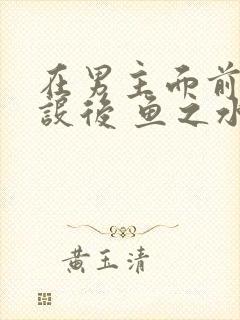 在男主面前
設後 鱼之水
黄玉清